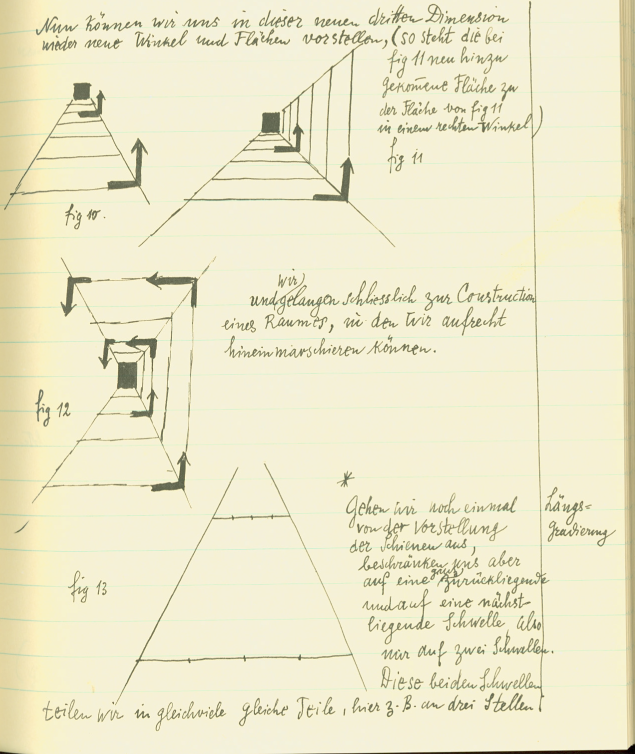 Nun können wir uns in dieser neuen dritten Dimension
wieder neue Winkel und Flächen vorstellen, (so steht die bei
fig 11 neu hinzu
gekom̅ene Fläche zu
der Fläche von fig 11
in einem rechten Winkel)
fig 10.
fig 11
wir)
und gelangen schliesslich zur Construction
eines Raumes, in den wir aufrecht
hineinmarschieren können.
fig 12
*
Gehen wir noch einmal
von der Vorstellung
der Schienen aus,
beschränken uns aber
auf eine ganz zurückliegende
und auf eine nächst-
liegende Schwelle, also
nur auf zwei Schwellen.
Diese beiden Schwellen
teilen wir in gleichviele gleiche Teile, hier z. B. an drei Stellen
Längs=
gradierung
fig 13